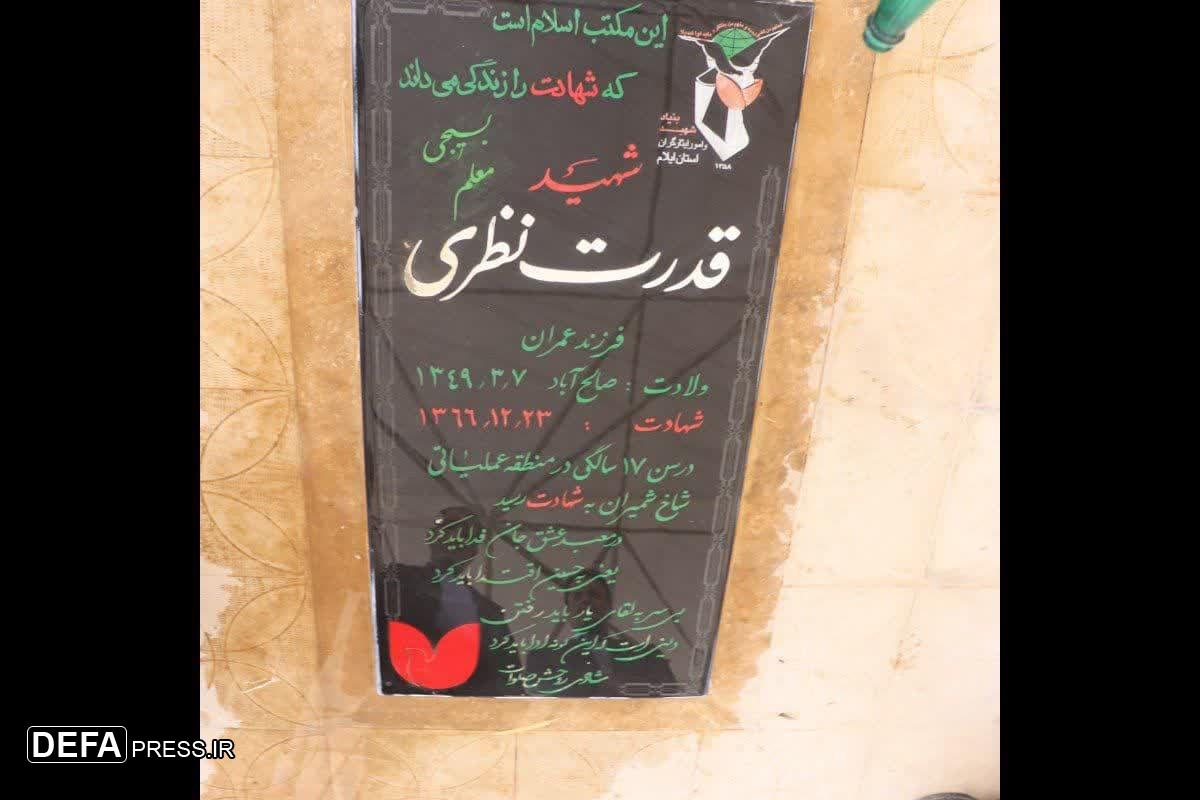 این مکتب اسلام است
که شهادت را زندگی می داند
بنیاد
شهید
و امور ایثارگران
استان ایلام
۱۳۵۸
بسیجی
معلم
شهید
قدرت نظری
فرزند عمران
ولادت : صالح آباد ۱۳٤۹٫۳٫۷
شهادت : ۱۳٦٦٫۱۲٫۲۳
در سن ۱۷ سالگی در منطقه عملیاتی
شاخ شمیران به شهادت رسید
در معبد عشق جان فدا باید کرد
یعنی به حسین اقتدا باید کرد
بی سر به لقای یار باید رفتن
دینی است که این گونه ادا باید کرد
شادی روحش صلوات
DEFAPRESS.IR